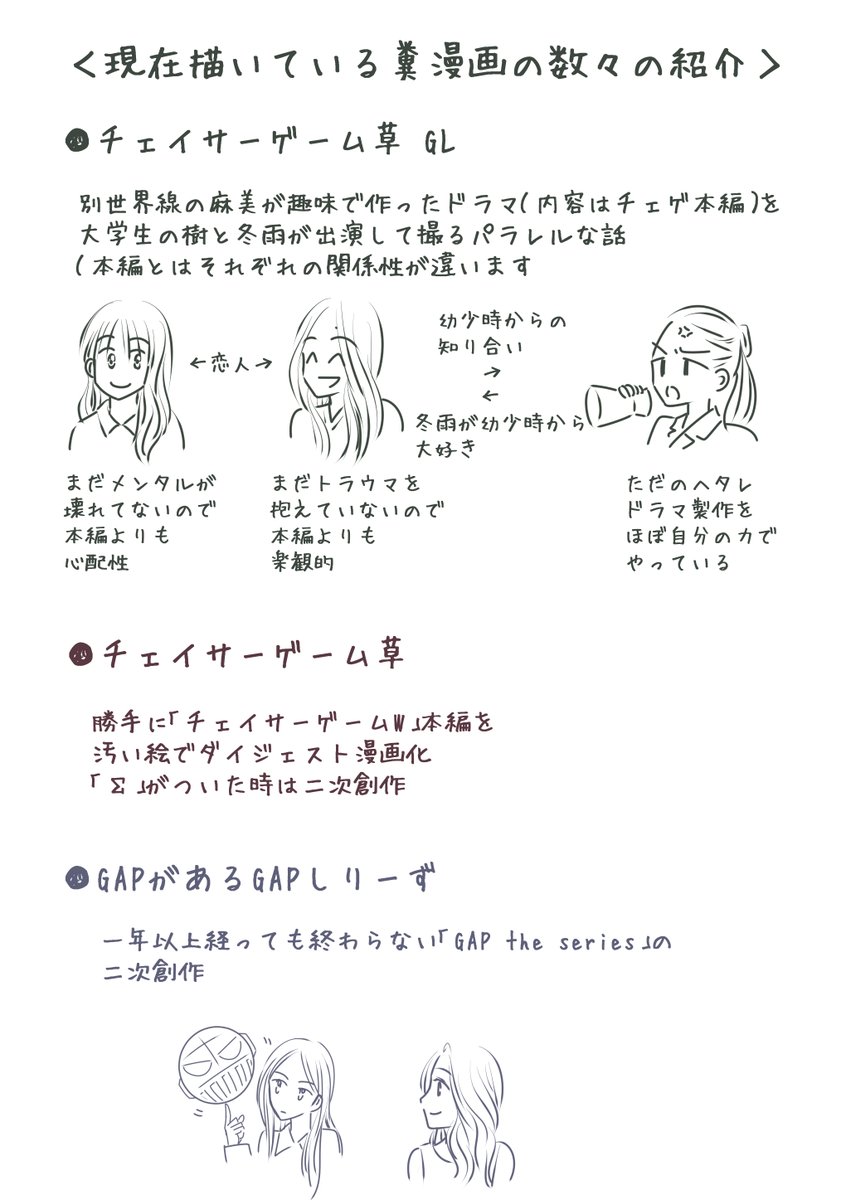 <現在描いている糞漫画の数々の紹介>
●チェイサーゲーム草 GL
別世界線の麻美が趣味で作ったドラマ(内容はチェゲ本編)を
大学生の樹と冬雨が出演して撮るパラレルな話
(本編とはそれぞれの関係性が違います
←恋人→
幼少時からの
知り合い
→
←
冬雨が幼少時から
大好き
まだメンタルが
壊れてないので
本編よりも
心配性
まだトラウマを
抱えていないので
本編よりも
楽観的
ただのヘタレ
ドラマ製作を
ほぼ自分の力で
やっている
●チェイサーゲーム草
勝手に「チェイサーゲームW」本編を
汚い絵でダイジェスト漫画化
「Σ」がついた時は二次創作
●GAPがあるGAPしりーず
一年以上経っても終わらない「GAP the series」の
二次創作